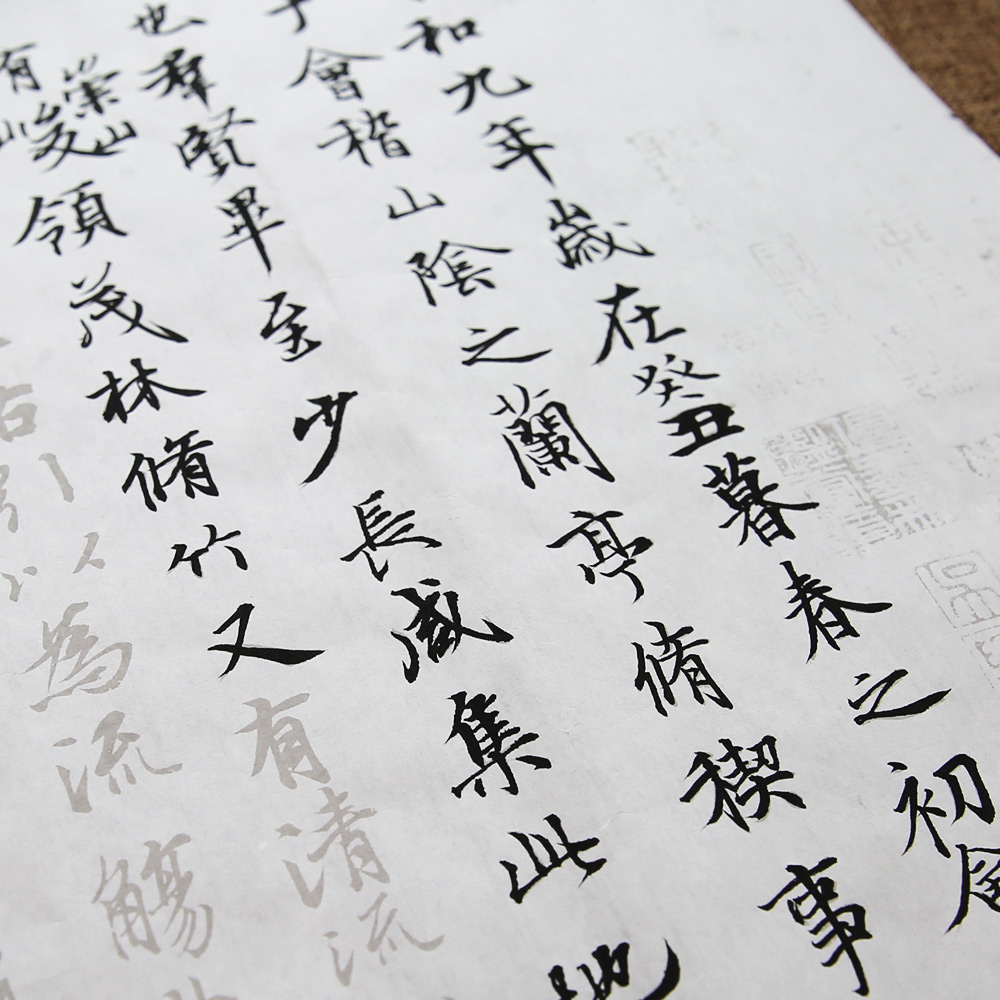 和九年歲在癸丑暮春之初會
于會稽山陰之蘭亭脩稧事
也羣賢畢至少長咸集此地
有崇山峻領茂林脩竹又有清流
右引以為流觴